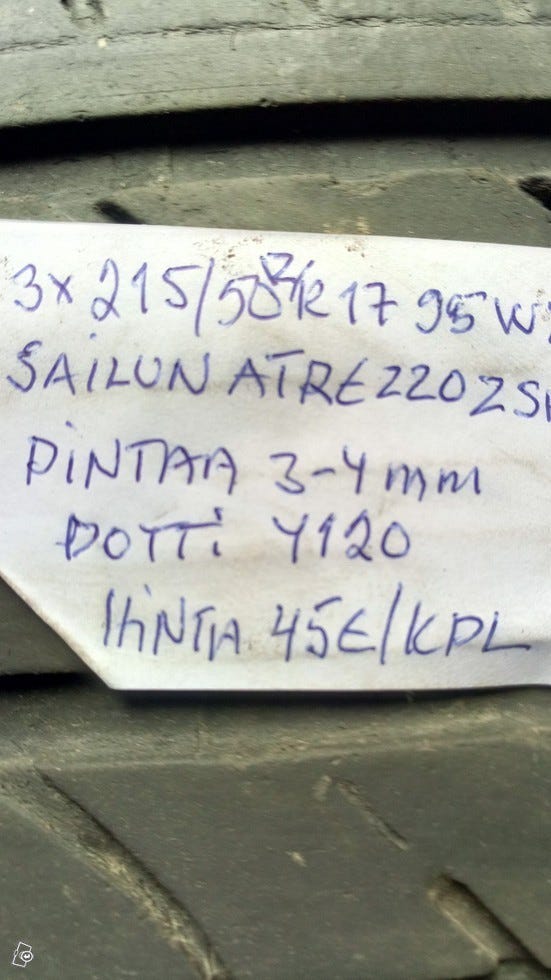 3x 215/50 Z/R 17 95 W
SAILUN ATREZZO ZS
PINTAA 3-4 mm
DOTTI 4120
HINTA 45€/KPL